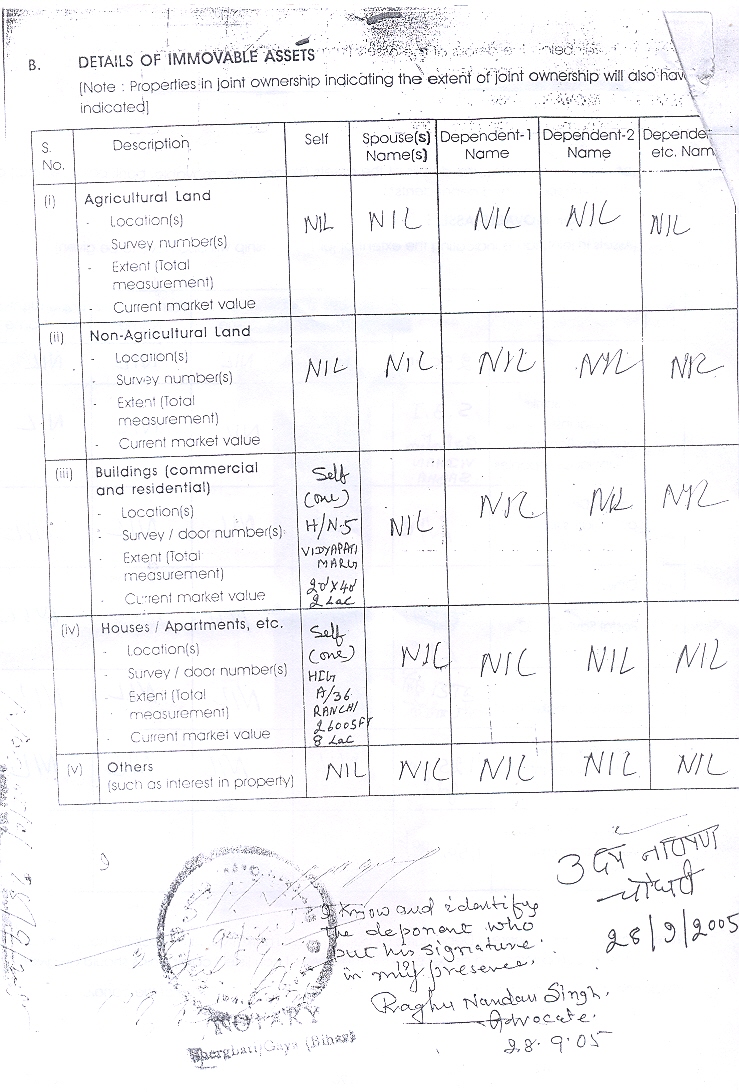 B. DETAILS OF IMMOVABLE ASSETS
[Note : Properties in joint ownership indicating the extent of joint ownership will also hav
indicated]
S. No. Description Self Spouse(s) Name(s) Dependent-1 Name Dependent-2 Name Depende etc. Nam
(i) Agricultural Land
- Location(s) NIL NIL NIL NIL NIL
- Survey number(s)
- Extent (Total
measurement)
- Current market value
(ii) Non-Agricultural Land
- Location(s) NIL NIL NIL NIL NIL
- Survey number(s)
- Extent (Total
measurement)
- Current market value
(iii) Buildings (commercial
and residential)
- Location(s)
- Survey / door number(s)
- Extent (Total
measurement)
- Current market value
Self
(one)
H/N-5
VIDYAPATI
MARG
20'X40'
2 Lac
NIL NIL NIL NIL
(iv) Houses / Apartments, etc.
- Location(s)
- Survey / door number(s)
- Extent (Total
- measurement)
- Current market value
Self
(one)
HIG
A/36
RANCHI
2600SFT
8 Lac
NIL NIL NIL NIL
(v) Others
(such as interest in property) NIL NIL NIL NIL NIL
उदय नारायण
चौधरी
28/9/2005
I know and identify
the deponent who
put his signature
in my presence.
Raghu Nandan Singh.
Advocate.
28.9.05
NOTARY
Sherghati/Gaya (Bihar)